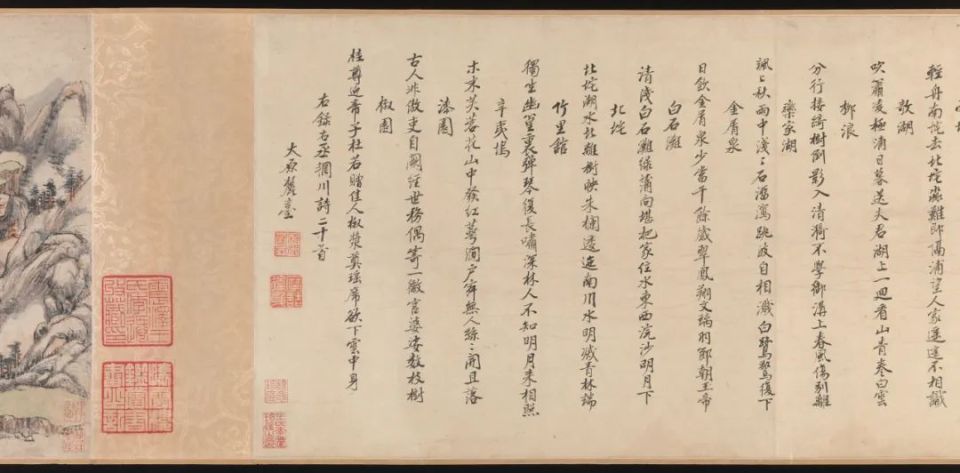 輕舟南垞去北垞淼難即隔浦望人家遙遙不相識
欹湖
吹簫凌極浦日暮送夫君湖上一迴看山青卷白雲
柳浪
分行接綺樹倒影入清漪不學御溝上春風傷別離
欒家湖
颯〻秋雨中淺〻石溜瀉跳波自相濺白鷺驚復下
金屑泉
日飲金屑泉少當千餘歲翠鳳翔文螭羽節朝玉帝
白石灘
清淺白石灘綠蒲向堪把家住水東西浣沙明月下
北垞
北垞湖水北雜樹映朱欄逶迤南川水明滅青林端
竹里館
獨坐幽篁裏彈琴復長嘯深林人不知明月來相照
辛夷塢
木末芙蓉花山中發紅萼澗戶寂無人紛〻開且落
漆園
古人非傲吏自闕經世務偶寄一微官婆娑數枝樹
椒園
桂尊迎帝子杜若贈佳人椒漿奠瑤席欲下雲中君
右錄右丞輞川詩二十首
太原麓臺